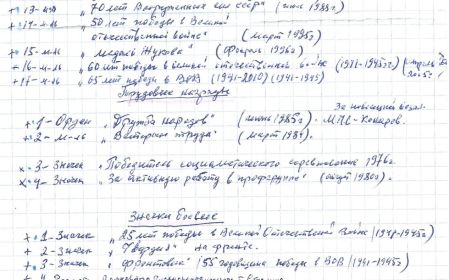 + 13 - м-ль "70 лет Вооруженных сил СССР" (1988г.)
+ 14 - м-ль "50 лет победы в Великой
отечественной войне" (март 1995г)
+ 15 - м-ль "медаль Жукова" (февраль 1996г)
+ 16 - м-ль "60 лет победы в великой отечественной войне (1941-1945г)
+ 17 - м-ль "65 лет победы в ВОВ (1941-2010) (1941-1945)
Трудовые награды
+ 1 - Орден "Дружба народов" (июнь 1985г.) М/ЛС - Комаров.
+ 2 - м-ль "Ветеран труда" (март 1984.
х - 3 - Значек "Победитель социалистического соревнования 1976г
х - 4 - Значек "За активную работу в профгруппе" (1980г).
Значки боевые
+ 1 - Значек "25 лет победы в Великой Отечественной Войне (1941-1945г)
+ 2 - Значек "Гвардия" на фронте.
+ 3 - Значек "Фронтовик" (55 годовщина победы в ВОВ (1941-1945г)